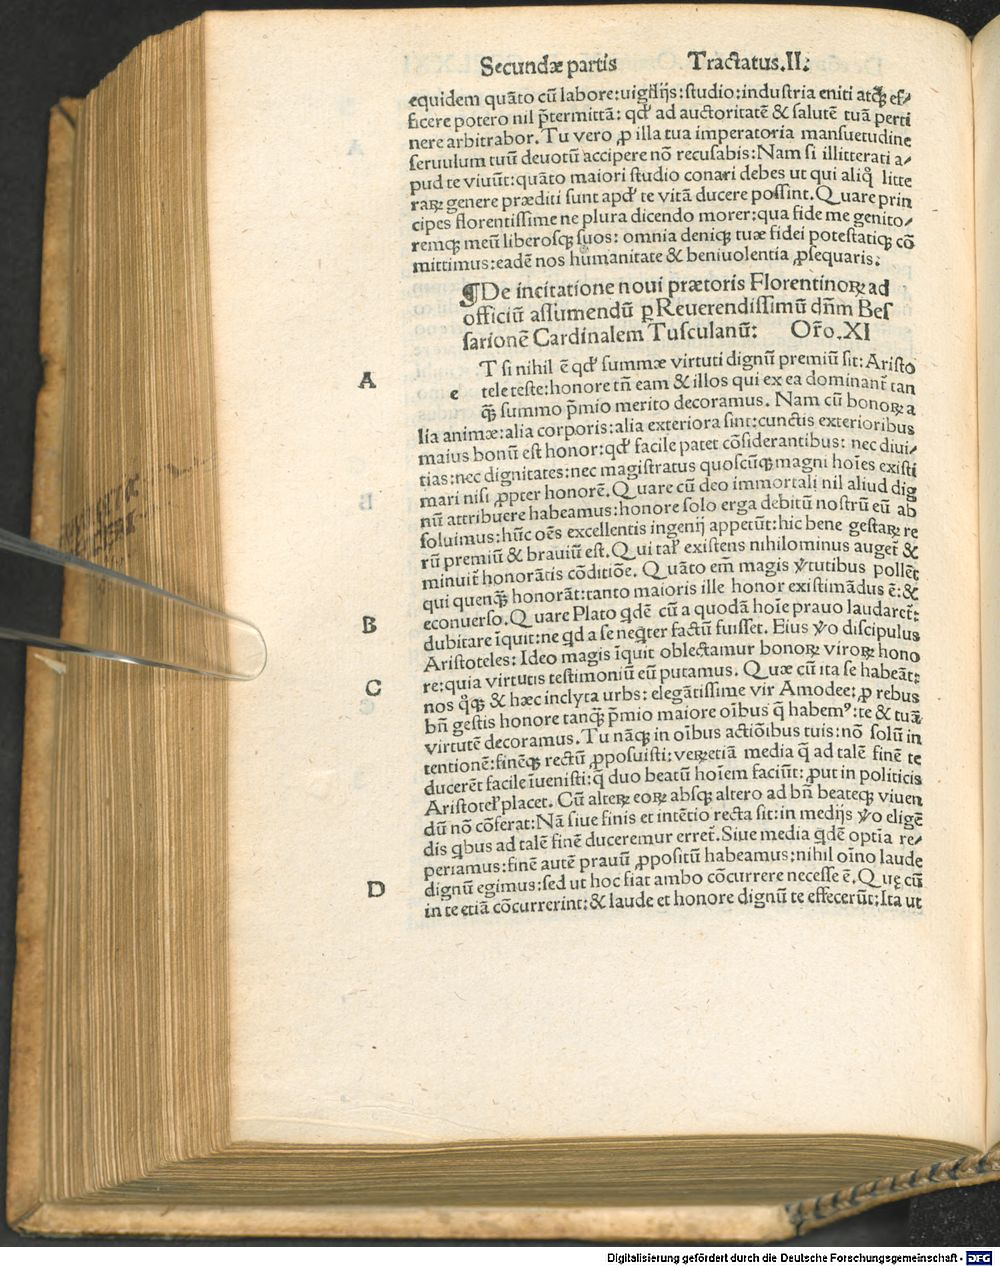 Secundæ partis Tractatus.II:
equidem quãto cũ labore:uigilijs:studio:industria eniti atqꝫ ef/
ficere potero nil p̃termittã: qđ ad auctoritatẽ & salutẽ tuã perti
nere arbitrabor. Tu vero ꝓ illa tua imperatoria mansuetudine
seruulum tuũ deuotũ accipere nõ recusabis: Nam si illitterati a/
pud te viuũt: quãto maiori studio conari debes ut qui aliq̃ litte
raꝝ genere præditi sunt apđ te vitã ducere possint. Quare prin
cipes florentissime ne plura dicendo morer: qua fide me genito/
remqꝫ meũ liberosqꝫ suos: omnia deniqꝫ tuæ fidei potestatiqꝫ cõ
mittimus: eadẽ nos humanitate & beniuolentia ꝓsequaris.
¶De incitatione noui prætoris Florentinoꝝ ad
officiũ assumendũ ꝑ Reuerendissimũ dñm Bes
sarionẽ Cardinalem Tusculanũ: Oro.XI
A
e
T si nihil ẽ qđ summæ virtuti dignũ premiũ sit: Aristo
tele teste: honore tñ eam & illos qui ex ea dominant̃ tan
qꝫ̃ summo p̃mio merito decoramus. Nam cũ bonoꝝ a
lia animæ: alia corporis: alia exteriora sint: cunctis exterioribus
maius bonũ est honor: qđ facile patet cõsiderantibus: nec diui/
tias: nec dignitates: nec magistratus quoscũqꝫ magni hoĩes existi
mari nisi ꝓpter honorẽ. Quare cũ deo immortali nil aliud dig
nũ attribuere habeamus: honore solo erga debitũ nostrũ eũ ab
soluimus: hũc oẽs excellentis ingenij appetũt: hic bene gestaꝝ re
rũ premiũ & brauiũ est. Qui tal' existens nihilominus auget̃ &
minuit̃ honorãtis cõditiõe. Quãto em̃ magis v̓tutibus pollẽt
qui quenqꝫ̃ honorãt: tanto maioris ille honor existimãdus ẽ: &
B
econuerso. Quare Plato qdẽ cũ a quodã hoĩe prauo laudaret̃:
dubitare ĩquit: ne qd a se neqter factũ fuisset. Eius v̓o discipulus
Aristoteles: Ideo magis ĩquit oblectamur bonoꝝ viroꝝ hono
re: quia virtutis testimoniũ eũ putamus. Quæ cũ ita se habeãt:
C
nos qͦqꝫ & hæc inclyta urbs: elegãtissime vir Amodee: ꝓ rebus
bñ gestis honore tanqꝫ̃ p̃mio maiore oĩbus q̃ habemꝰ: te & tuã
virtutẽ decoramus. Tu nãqꝫ in oĩbus actiõibus tuis: nõ solũ in
tentionẽ: finẽqꝫ rectũ ꝓposuisti: veꝝetiã media q̃ ad talẽ finẽ te
ducerẽt facile ĩuenisti: q̃ duo beatũ hoĩem faciũt: ꝓut in politicis
Aristotel' placet. Cũ alteꝝ eoꝝ absqꝫ altero ad bñ beateqꝫ viuen
dũ nõ cõferat: Nã siue finis et intẽtio recta sit: in medijs v̓o eligẽ
dis qbus ad talẽ finẽ duceremur erret̃. Siue media qdẽ optĩa re/
periamus: finẽ autẽ prauũ ꝓpositũ habeamus: nihil oĩno laude
D
dignũ egimus: sed ut hoc fiat ambo cõcurrere necesse ẽ. Quę cũ
in te etiã cõcurrerint: & laude et honore dignũ te effecerũt: Ita ut
Digitalisierung gefördert durch die Deutsche Forschungsgemeinschaft - DFG